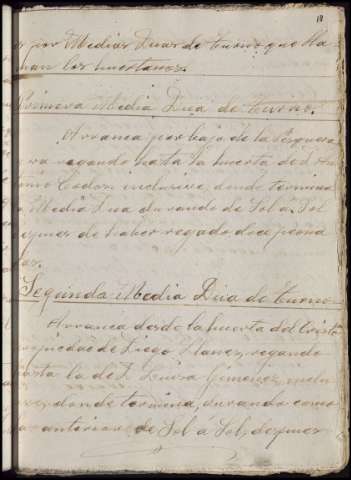 18
por Medias Duas de turno que lla-
man los huertanos.
Primera Media Dua de turno.
Arranca por bajo de la
regando hasta la huerta de d. An-
tonio Codor inclusive, donde termina
Media Dua durando de Sol a Sol
despues de haber regado doce peona
das.
Segunda Media Dua de turno
Arranca desde la huerta del Cristo
propiedad de Diego Llanes, regando
hasta la de d. Luisa Gimenez, inclu
donde termina, durando como
la anterior de Sol a Sol, despues